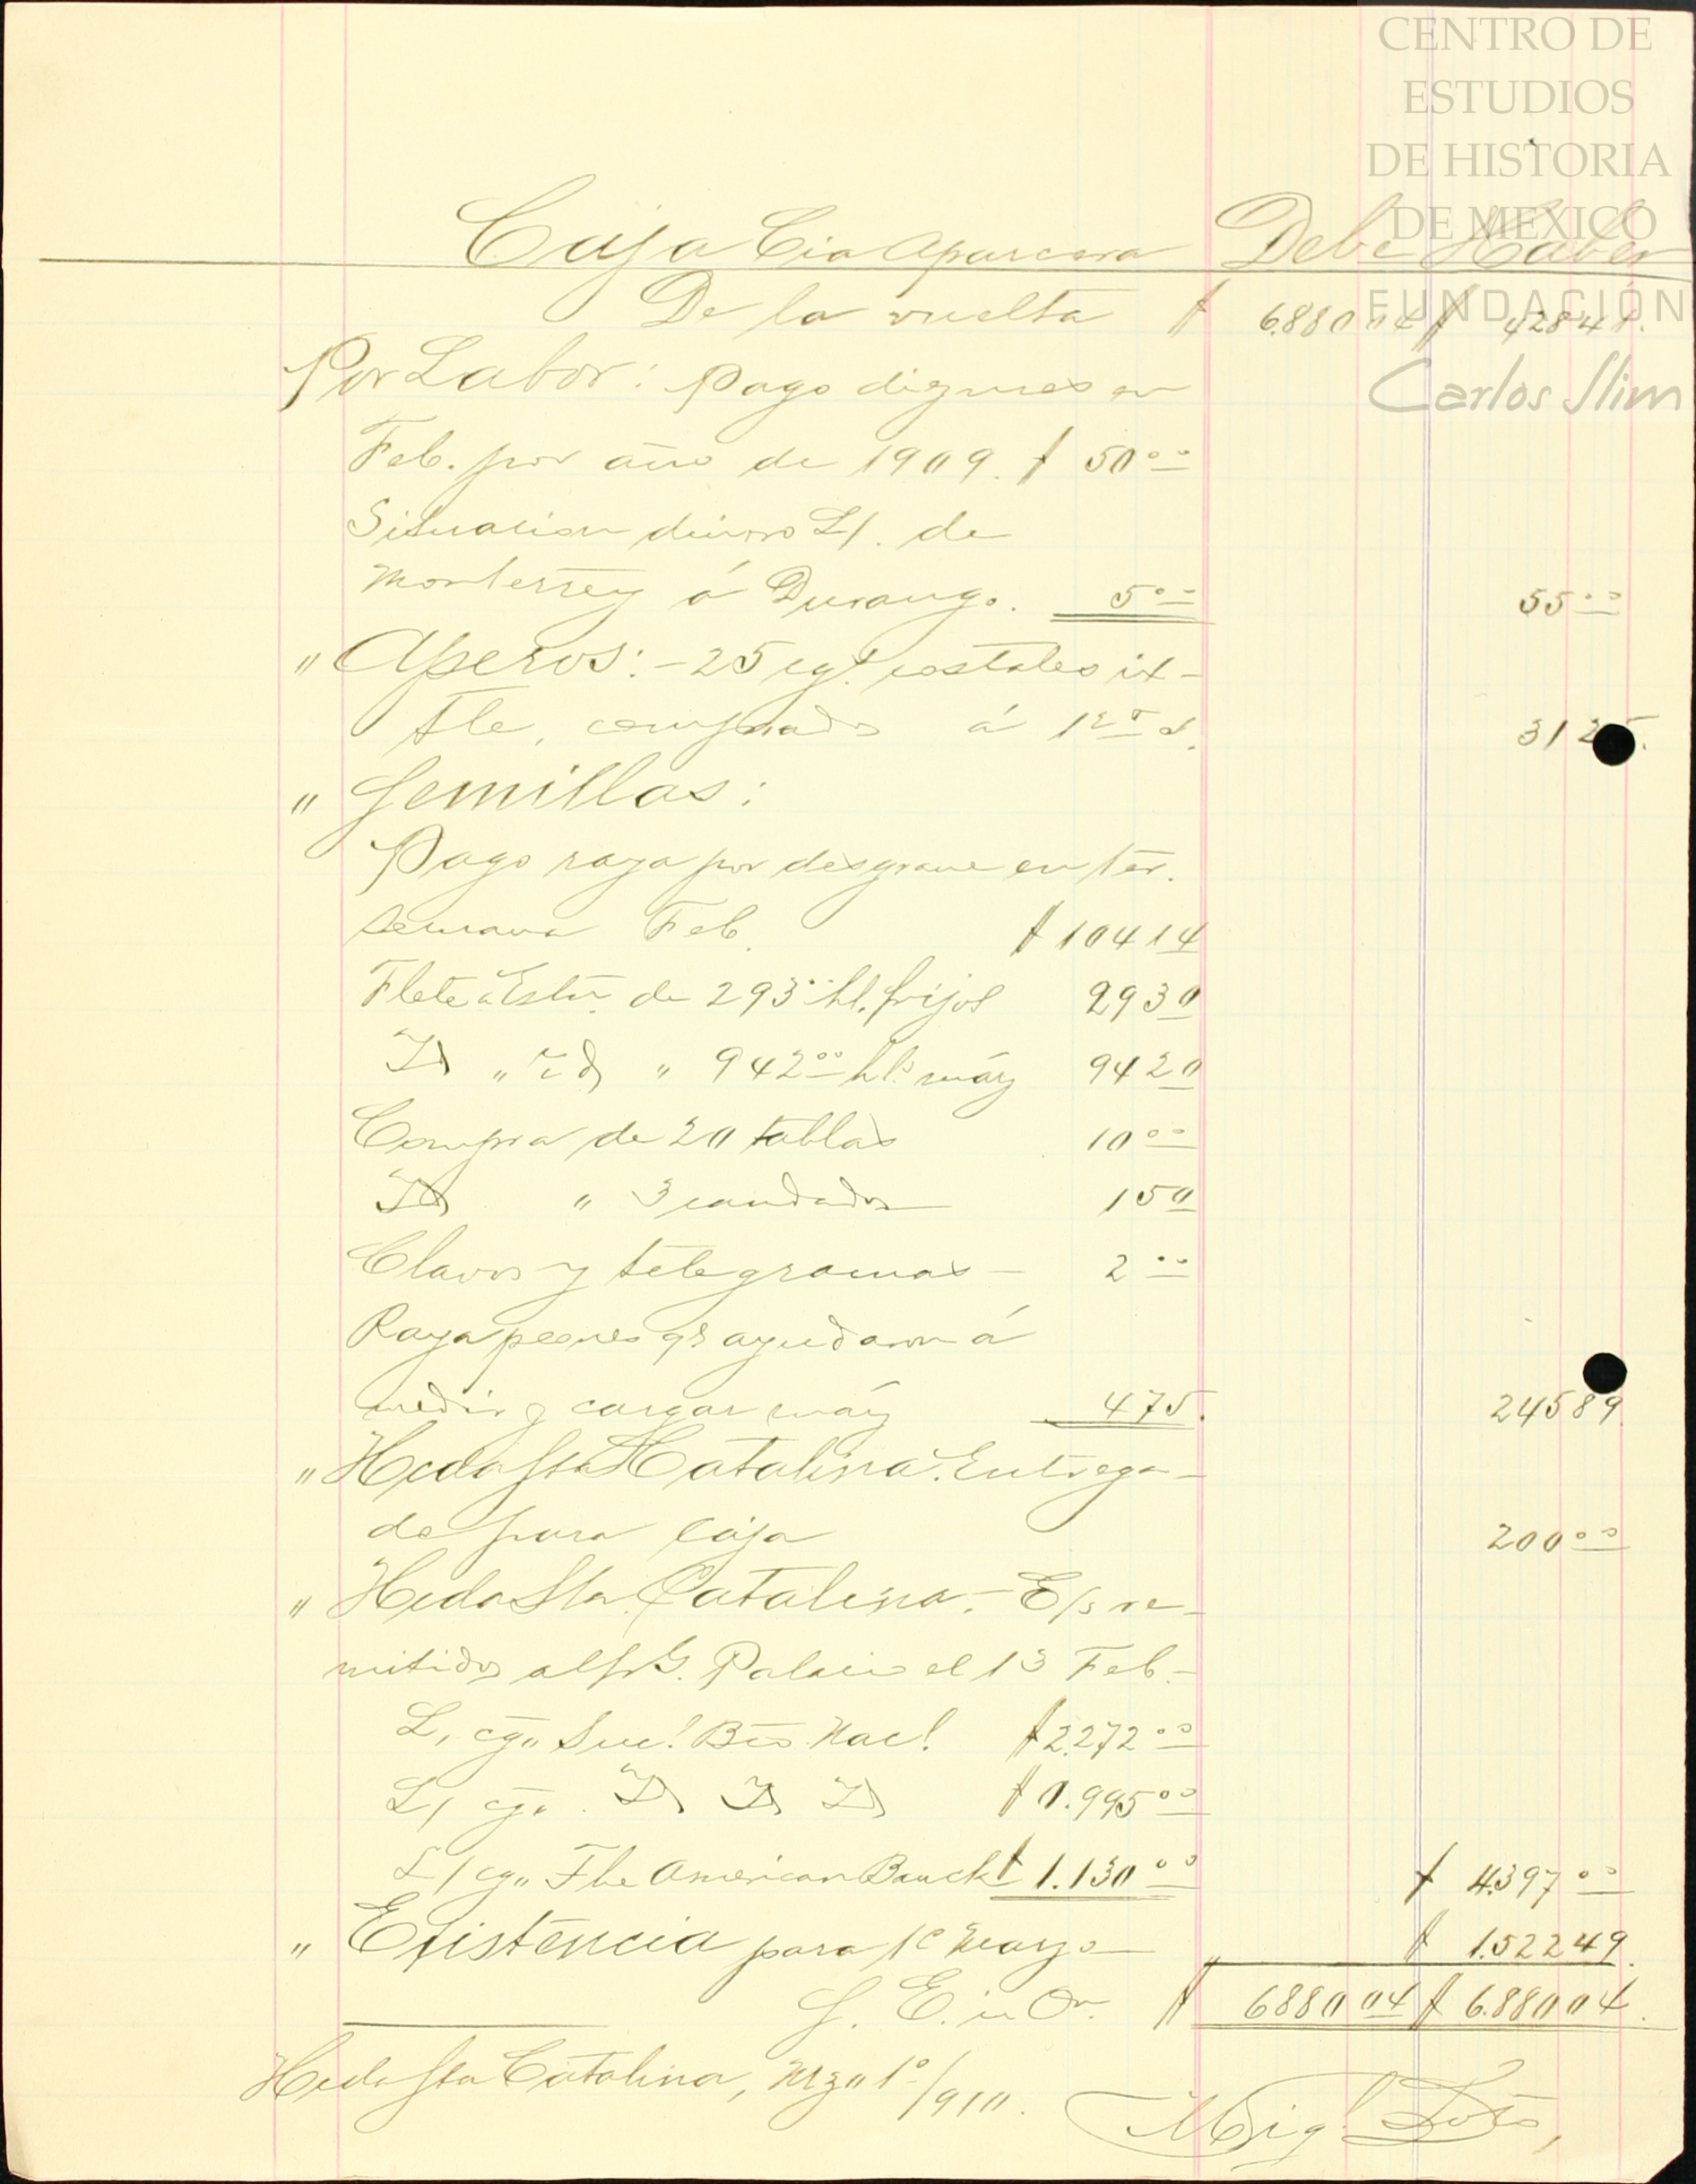 CENTRO DE
ESTUDIOS
DE HISTORIA
DE MEXICO
FUNDACIÓN
Carlos Slim
Caja Cia Aparcera Debe Haber
De la vuelta $ 6.880 04 $ 428 41.
Por Labor: Pago digmes en
Feb. por año de 1909. $ 50 00
Situacion dinero L/. de
Monterrey á Durango. 5 00 55 00
" Aperos: - 25 cg. costales ix-
tle, comprados á 1 25 31 25.
" Semillas:
Pago raya por desgrane en 1er.
semana Feb. $ 104 14
Flete á Estn. de 293 00 hl. frijol 29 30
Id " id " 942 00 hls. máiz 94 20
Compra de 20 tablas 10 00
Id " 3 candados 1 50
Clavos y telegramas - 2 00
Raya peones qe ayudaron á
medir y cargar máiz 4 75. 245 89
" Hcda Sta Catalina. Entrega-
do para Caja 200 00
" Hcda Sta. Catalina. - E/s re-
mitidos al Sr G. Palacio el 13 Feb. -
L, cg" Suc! Bco. Nacl. $ 2.272 00
L/ cg". Id Id Id $ 0.995 00
L/ cg" The American Banck $ 1.130 00 $ 4.397 00
" Existencia para 1o Marzo " $ 1.522 49.
S. E. u On. $ 6880 04 $ 6.880 04.
Hcda Sta Catalina, Mzo 1o/910. Migl.